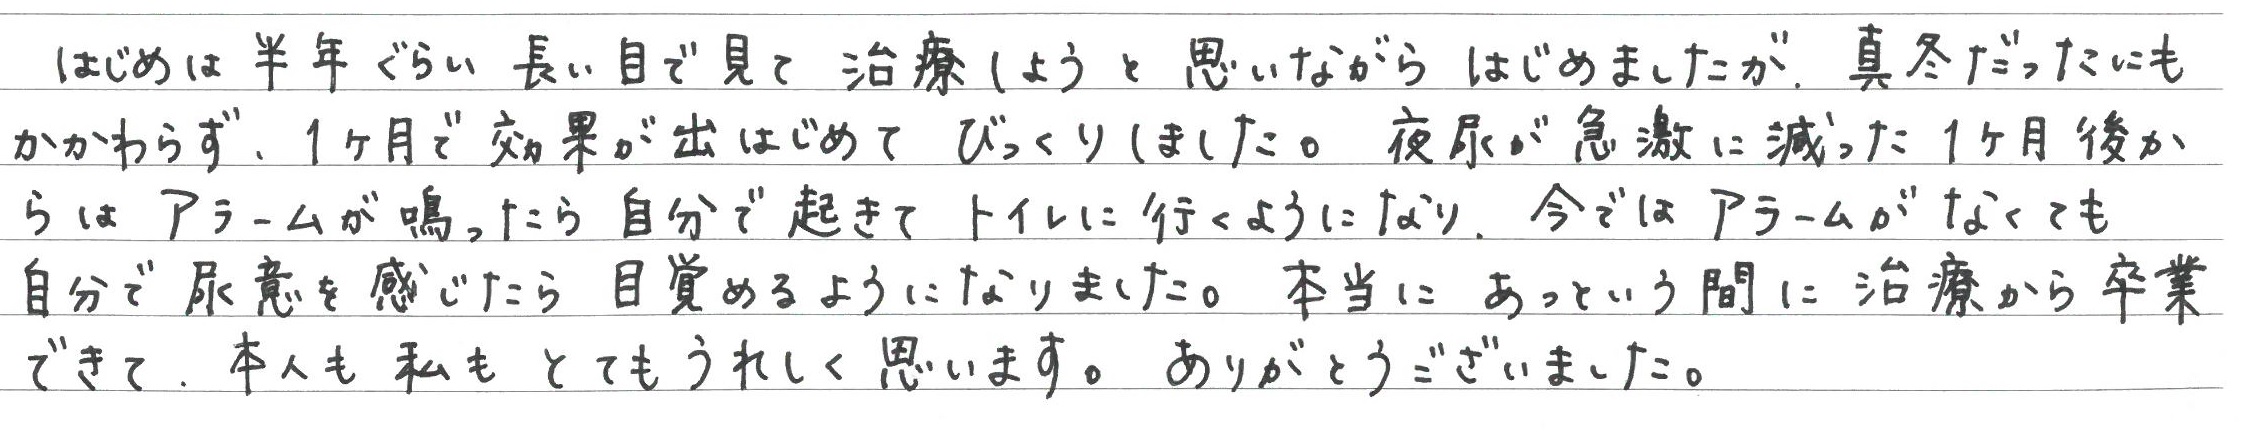 はじめは半年ぐらい長い目で見て治療しようと思いながらはじめましたが、真冬だったにも
かかわらず、1ヶ月で効果が出はじめてびっくりしました。夜尿が急激に減った1ヶ月後か
らはアラームが鳴ったら自分で起きてトイレに行くようになり、今ではアラームがなくても
自分で尿意を感じたら目覚めるようになりました。本当にあっという間に治療から卒業
できて、本人も私もとてもうれしく思います。ありがとうございました。